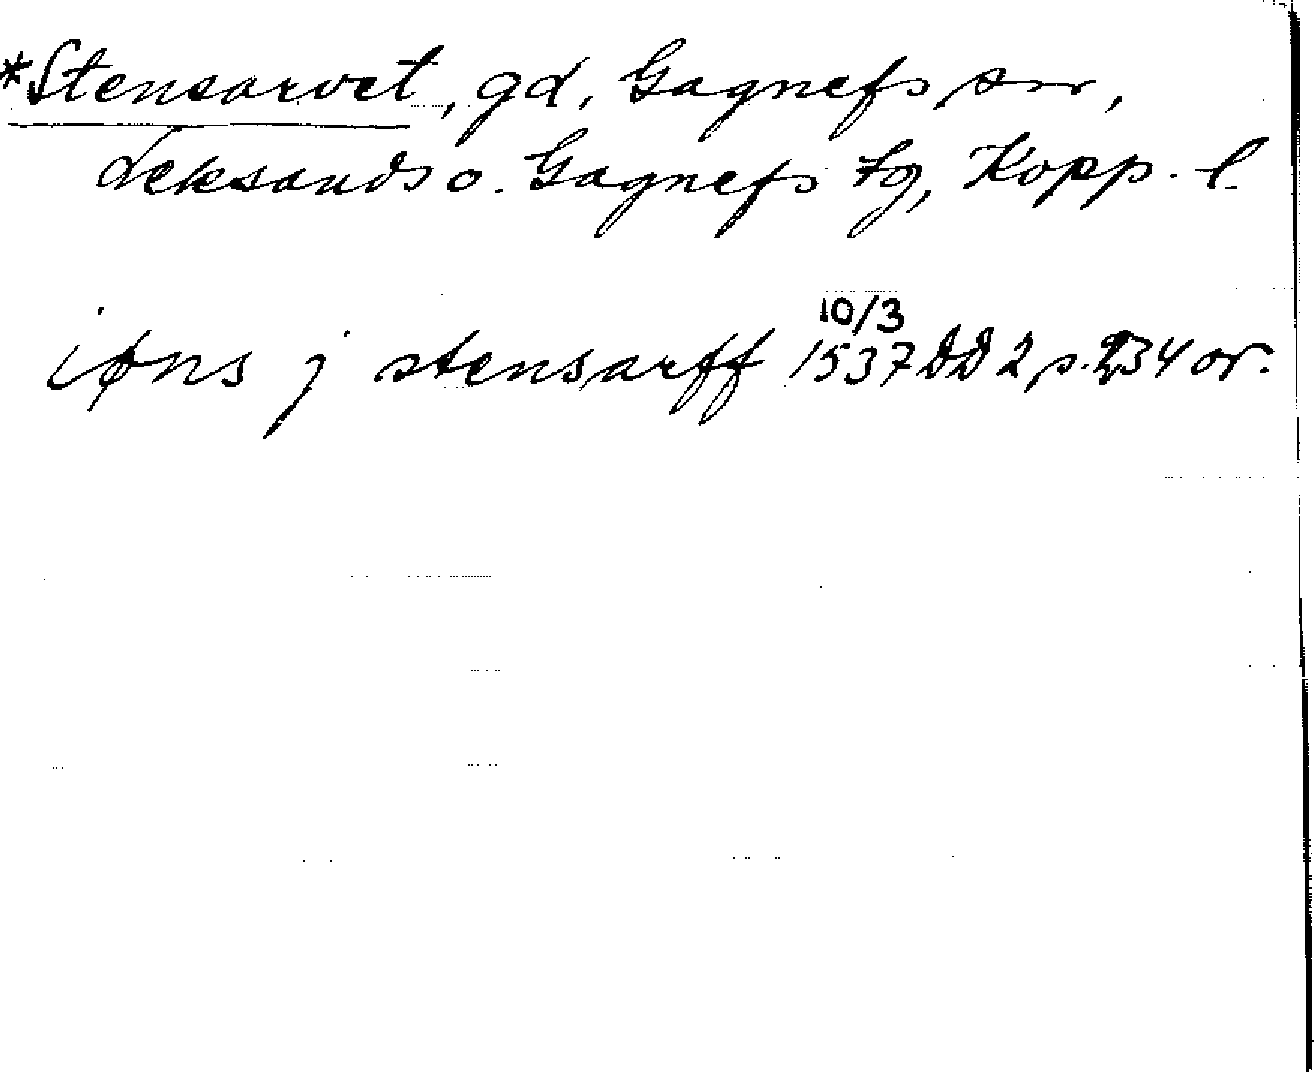 *Stensarvet, gd, Gagnefs sn,
Leksands o. Gagnefs tg, Kopp. l.
10/3
iøns j stensarff 1537 DD 2, s. 234 or.